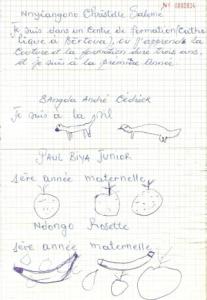 Nnyiangono Christelle Salome
Je suis dans un Centre de formation (Catho
lique à Bertoua), où j'apprends la
Couture et la                     dure trois ans,
et je suis à la première année.
Bangda André Cédrick
Je suis à la
PAUL BIYA JUNIOR
1ère année maternelle
Ndongo Rosette
1ère année maternelle